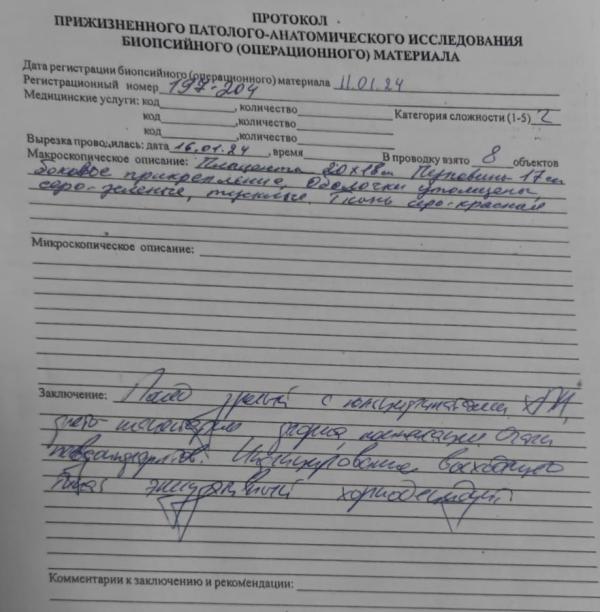 ПРОТОКОЛ
ПРИЖИЗНЕННОГО ПАТОЛОГО-АНАТОМИЧЕСКОГО ИССЛЕДОВАНИЯ
БИОПСИЙНОГО (ОПЕРАЦИОННОГО) МАТЕРИАЛА
Дата регистрации биопсийного (операционного) материала 11.01.24
Регистрационный номер 197-204
Медицинские услуги: код, количество Категория сложности (1-5) 2
код, количество
код, количество
Вырезка проводилась: дата 16.01.24, время В проводку взято 8 объектов
Макроскопическое описание: Плацента 20х18см Пуповина 17см
боковое прикрепление, Оболочки утолщены
серо-зеленые, тусклые. Ткань серо-красная
Микроскопическое описание:
Заключение: с
Очаги
псевдоинфарктов. Инфицирование восходящего
типа: экссудативный хориодецидуит
Комментарии к заключению и рекомендации: